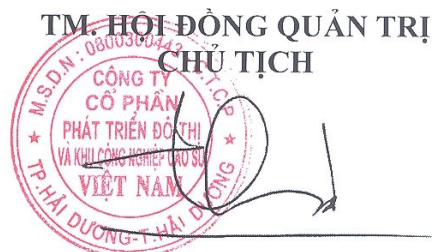 TM. HỘI ĐỒNG QUẢN TRỊ
CHỦ TỊCH
M.S.D.N: 0800300443 - C.T.C.P
CÔNG TY
CỔ PHẦN
PHÁT TRIỂN ĐÔ THỊ
VÀ KHU CÔNG NGHIỆP CAO SU
VIỆT NAM
TP.HẢI DƯƠNG-T.HẢI DƯƠNG